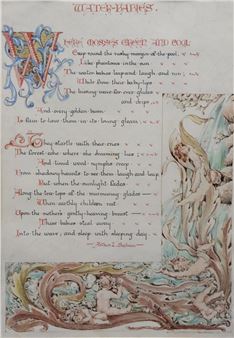 WATER-BABIES.
WHERE MOSSES CREEP AND COOL
Creep round the rushy margin of the pool,
Like phantoms in the sun
The water babies leap and laugh and run;
While from their baby-lips
The burning wave for ever glides
and drips,
And every golden
Is fain to love them in its loving glass.
They startle with their cries
The forest-ache where she dreaming lies
And timid wood-nymphs creep
From shadowy haunts to see them laugh and leap
But when the sunlight fades
Along the tree-tops of the murmuring glades
When earthly children rest
Upon the mother's gently-heaving breast
These babes steal away
Into the wave, and sleep with sleeping day.